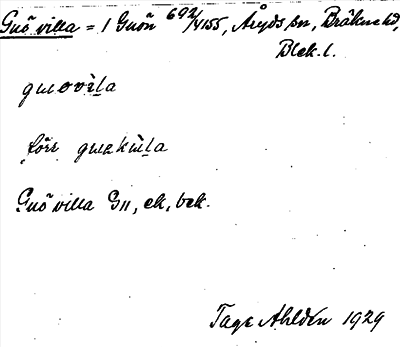 Gnö villa = 1 Gnön 692/4155, Åryds sn, Bräkne hd,
Blek. l.
gnøvila
förr
Gnö villa G11, ek, bek.
Tage Ahldén 1929